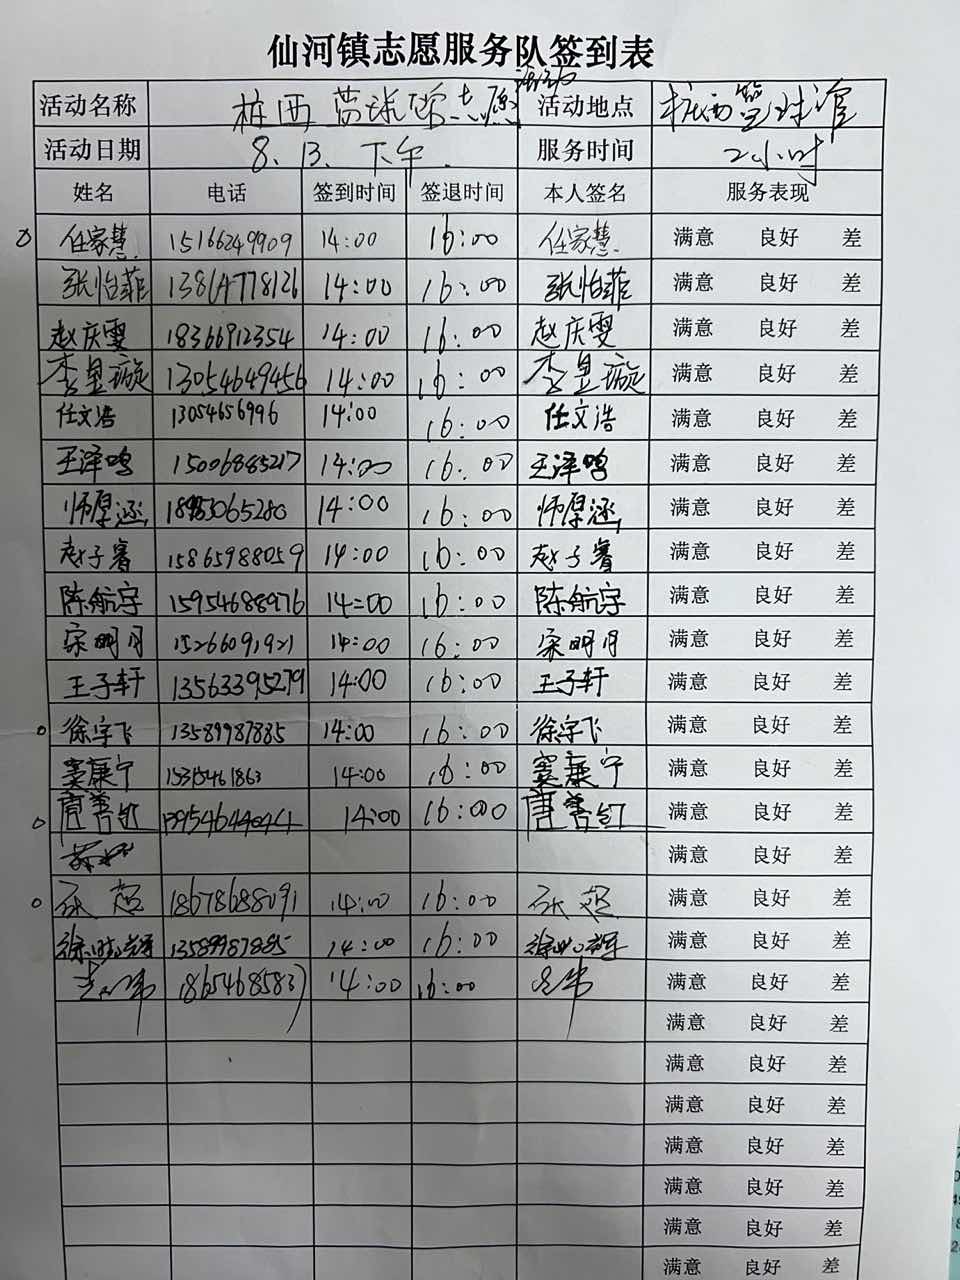 仙河镇志愿服务队签到表
活动名称 桩西篮球馆志愿活动 活动地点 桩西篮球馆
活动日期 8.13.下午. 服务时间 2小时
姓名 电话 签到时间 签退时间 本人签名 服务表现
任家慧 15166249909 14:00 16:00 任家慧 满意 良好 差
张怡菲 13864778126 14:00 16:00 张怡菲 满意 良好 差
赵庆雯 18366912354 14:00 16:00 赵庆雯 满意 良好 差
李昱璇 13054649456 14:00 16:00 李昱璇 满意 良好 差
任文浩 13054656996 14:00 16:00 任文浩 满意 良好 差
王泽鸣 15006885217 14:00 16:00 王泽鸣 满意 良好 差
师厚涵 18953065280 14:00 16:00 师厚涵 满意 良好 差
赵子睿 15865988059 14:00 16:00 赵子睿 满意 良好 差
陈航宇 15954688976 14:00 16:00 陈航宇 满意 良好 差
宋明月 15266091921 14:00 16:00 宋明月 满意 良好 差
王子轩 13563395279 14:00 16:00 王子轩 满意 良好 差
徐宇飞 13589987885 14:00 16:00 徐宇飞 满意 良好 差
窦康宁 15315461863 14:00 16:00 窦康宁 满意 良好 差
唐善钰 14:00 16:00 唐善钰 满意 良好 差
满意 良好 差
张超 18678688091 14:00 16:00 张超 满意 良好 差
13589987885 14:00 16:00 满意 良好 差
18654685837 14:00 16:00 满意 良好 差
满意 良好 差
满意 良好 差
满意 良好 差
满意 良好 差
满意 良好 差
满意 良好 差
满意 良好 差